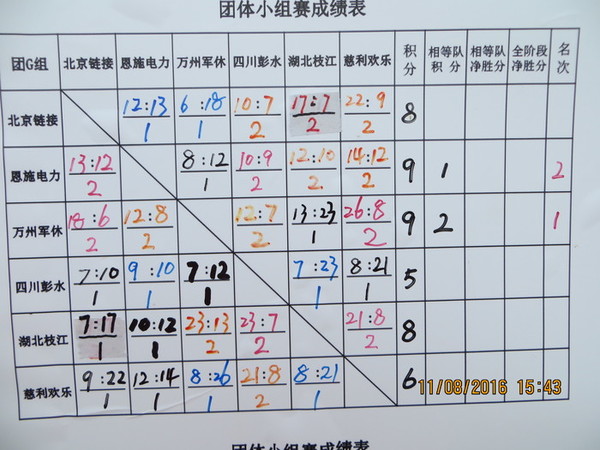 团体小组赛成绩表
团G组 北京链接 恩施电力 万州军休 四川彭水 湖北枝江 慈利欢乐 积分 相等队积分 相等队净胜分 全阶段净胜分 名次
北京链接 12:13 6:18 10:7 17:7 22:9 8
1 1 2 2 2
恩施电力 13:12 8:12 10:9 12:10 14:12 9 1 2
2 1 2 2 2
万州军休 18:6 12:8 12:7 13:23 26:8 9 2 1
2 2 2 1 2
四川彭水 7:10 9:10 7:12 7:23 8:21 5
1 1 1 1 1
湖北枝江 7:17 10:12 23:13 23:7 21:8 8
1 1 2 2 2
慈利欢乐 9:22 12:14 8:26 21:8 8:21 6
1 1 1 2 1
11/08/2016 15:43
团体小组赛成绩表